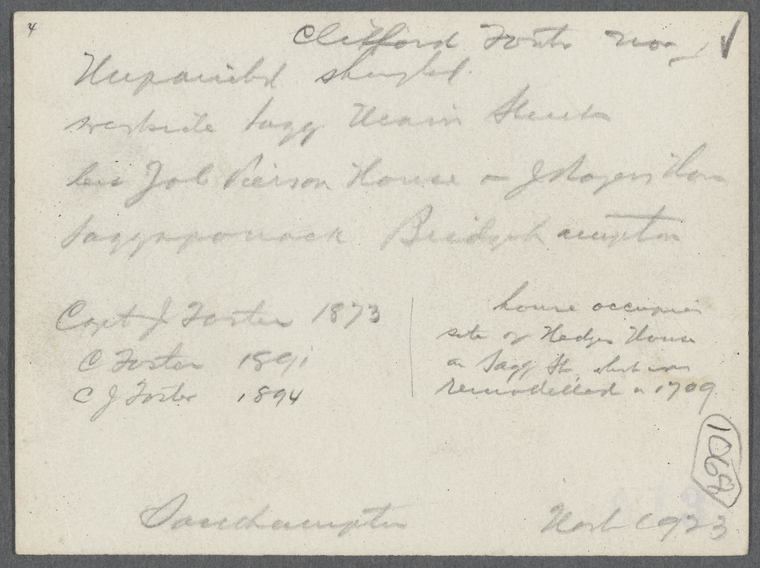 4
Clifford Foster
Unpainted shingled.
westside Sagg Main Street
bet Job Pierson House & J Rogers House
Saggaponack Bridgehampton
Capt J Foster 1873
C Foster 1891
C J Foster 1894
house occupies
site of Hedges House
on Sagg St. which was
remodelled in 1709
1062
Southampton 1923